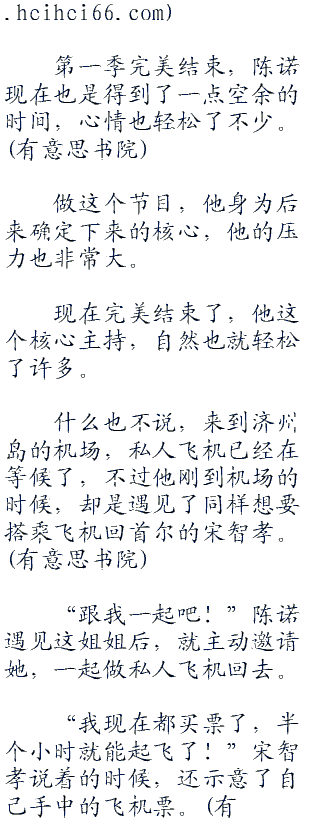 .hcihci66.com)
第一季完美结束，陈诺
现在也是得到了一点空余的
时间，心情也轻松了不少。
(有意思书院)
做这个节目，他身为后
来确定下来的核心，他的压
力也非常大。
现在完美结束了，他这
个核心主持，自然也就轻松
了许多。
什么也不说，来到济州
岛的机场，私人飞机已经在
等候了，不过他刚到机场的
时候，却是遇见了同样想要
搭乘飞机回首尔的宋智孝。
(有意思书院)
“跟我一起吧！”陈诺
遇见这姐姐后，就主动邀请
她，一起做私人飞机回去。
“我现在都买票了，半
个小时就能起飞了！”宋智
孝说着的时候，还示意了自
己手中的飞机票。(有